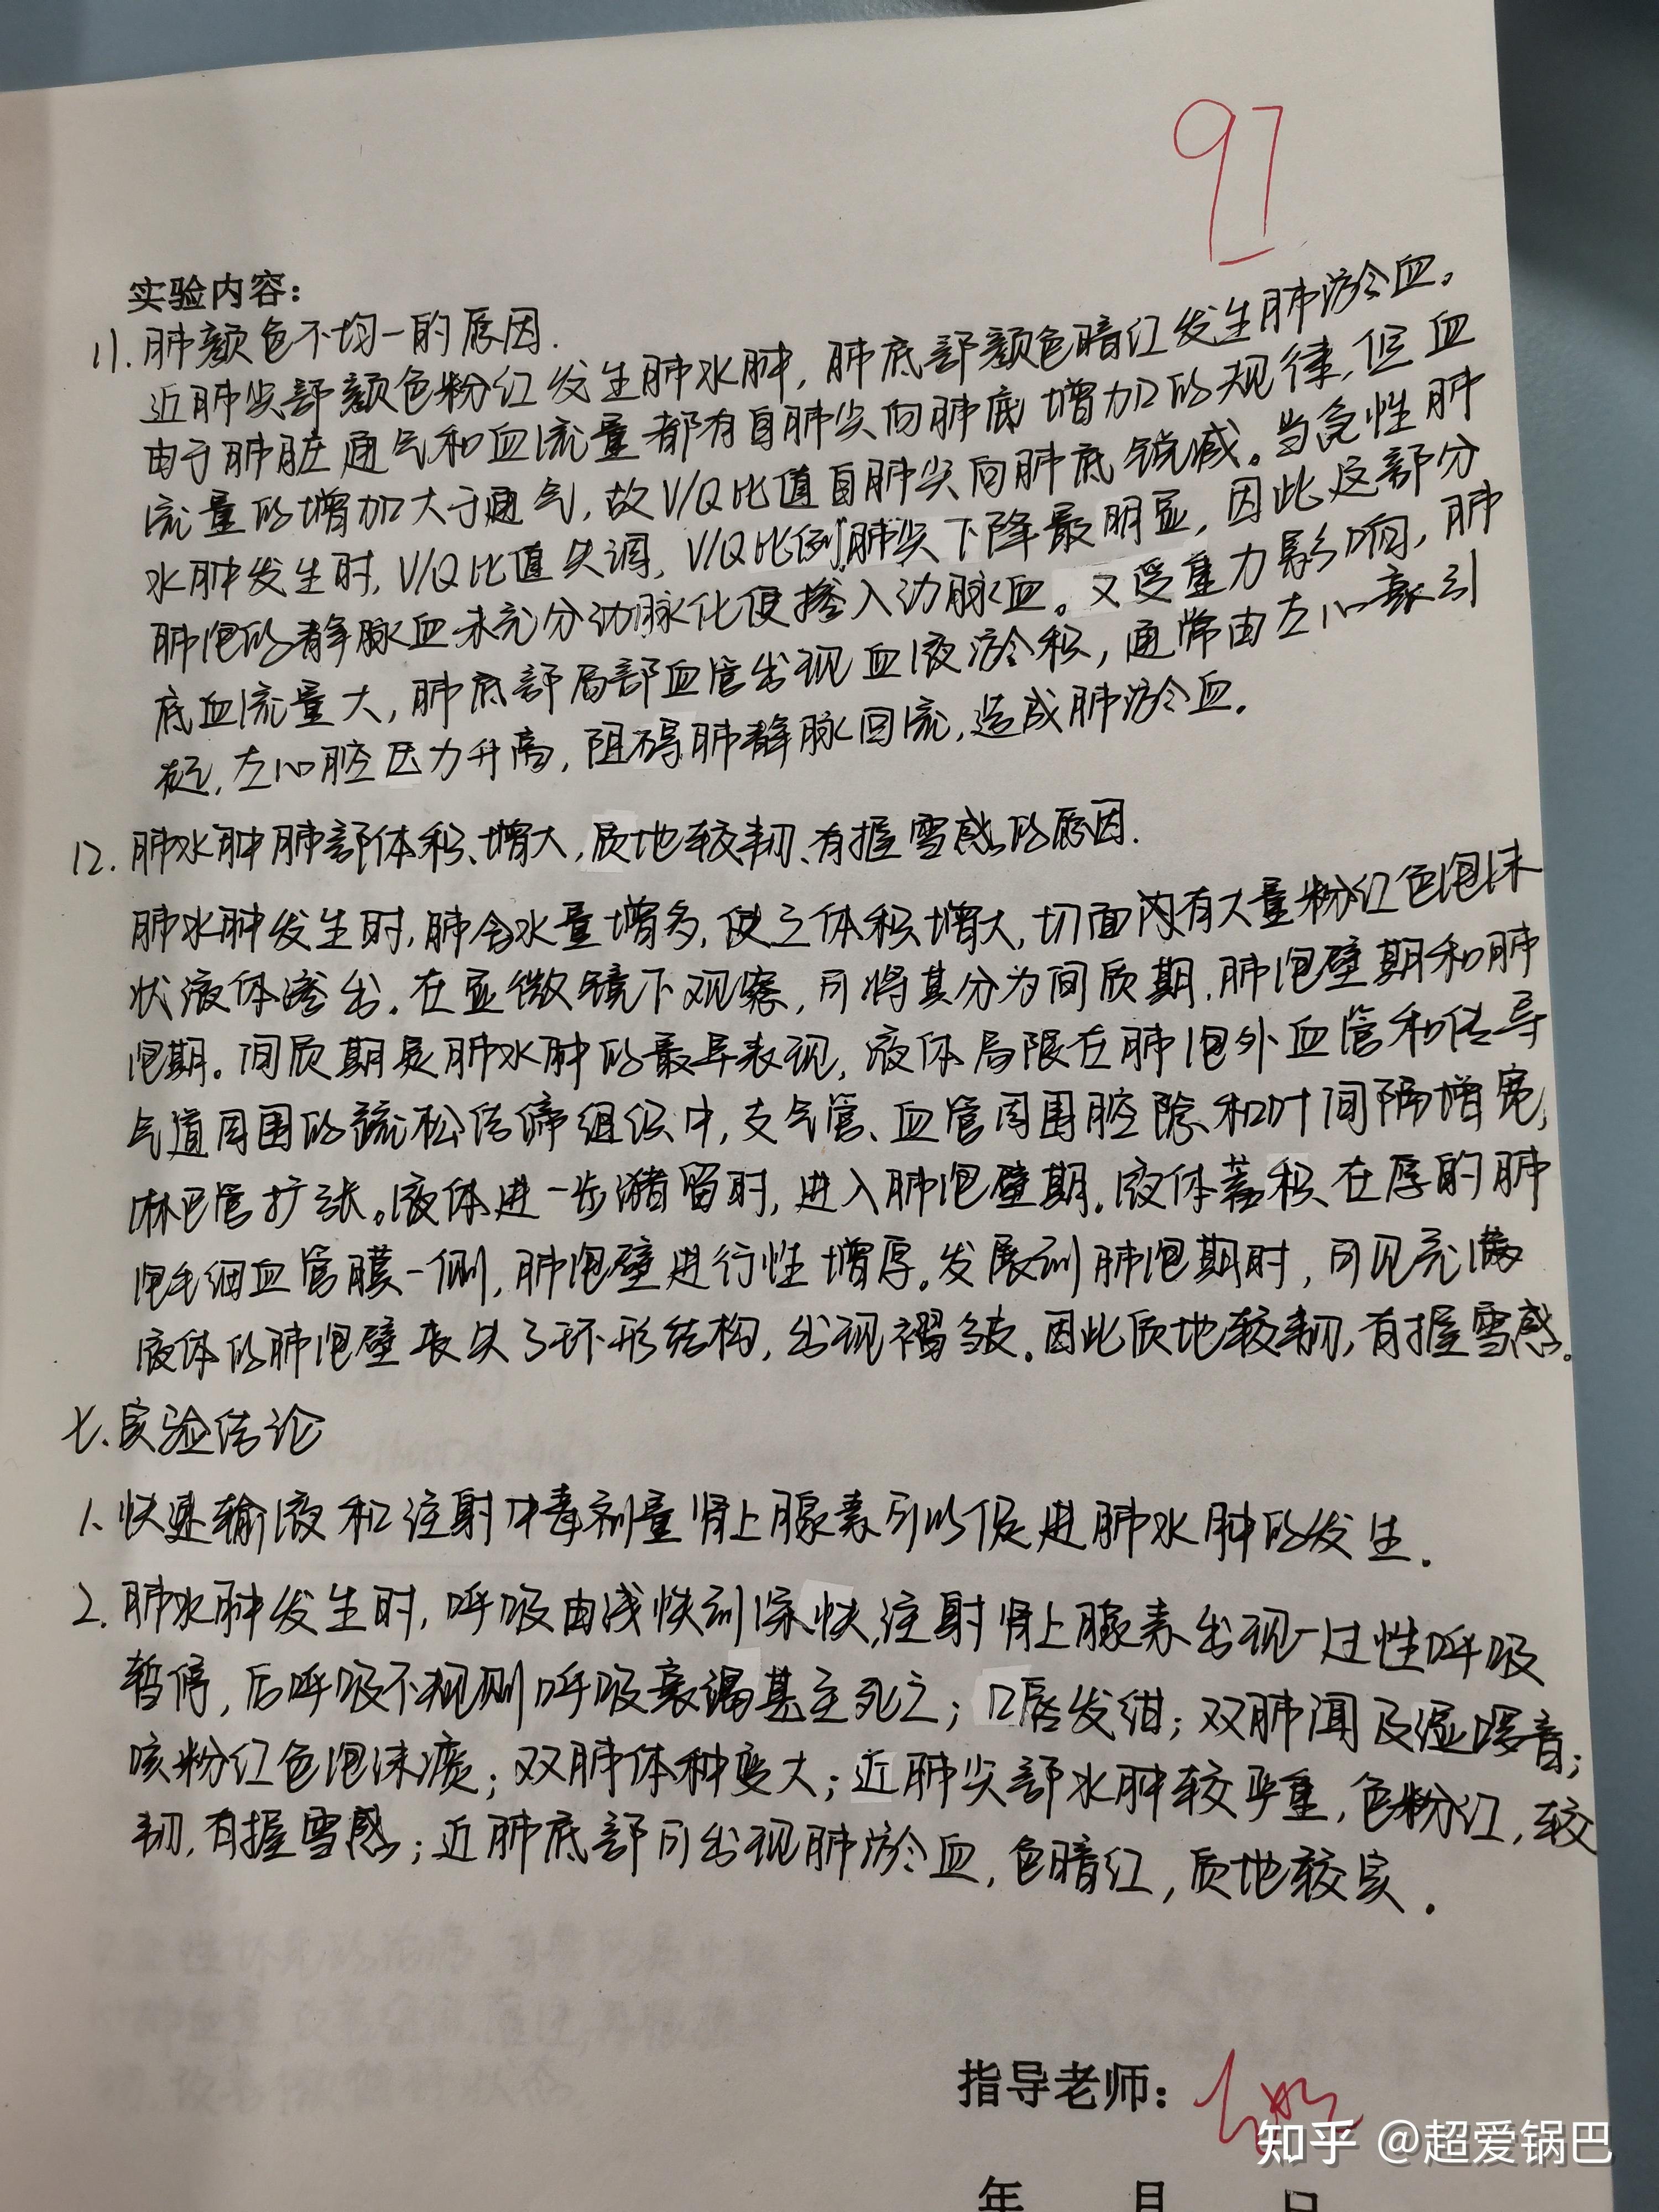 97
实验内容：
11. 肺颜色不均一的原因.
近肺尖部颜色粉红发生肺水肿，肺底部颜色暗红发生肺淤血。
由于肺脏通气和血流量都有自肺尖向肺底增加的规律，但血
流量的增加大于通气，故V/Q比值自肺尖向肺底锐减。当急性肺
水肿发生时，V/Q比值失调，V/Q比例肺尖下降最明显，因此这部分
肺泡的静脉血未充分动脉化便掺入动脉血。又受重力影响，肺
底血流量大，肺底部局部血管出现血液淤积，通常由左心衰引
起，左心腔压力升高，阻碍肺静脉回流，造成肺淤血.
12. 肺水肿肺部体积增大，质地较韧、有握雪感的原因.
肺水肿发生时，肺含水量增多，使之体积增大，切面内有大量粉红色泡沫
状液体渗出。在显微镜下观察，可将其分为间质期，肺泡壁期和肺
泡期。间质期是肺水肿的最早表现，液体局限在肺泡外血管和传导
气道周围的疏松结缔组织中，支气管、血管周围腔隙和叶间隔增宽，
淋巴管扩张。液体进一步潴留时，进入肺泡壁期。液体蓄积在厚的肺
泡毛细血管膜一侧，肺泡壁进行性增厚。发展到肺泡期时，可见充满
液体的肺泡壁丧失了环形结构，出现褶皱。因此质地较韧，有握雪感。
七、实验结论
1、快速输液和注射中毒剂量肾上腺素可以促进肺水肿的发生.
2. 肺水肿发生时，呼吸由浅快到深快，注射肾上腺素出现一过性呼吸
暂停，后呼吸不规则呼吸衰竭甚至死亡；口唇发绀；双肺闻及湿啰音；
咳粉红色泡沫痰；双肺体积变大；近肺尖部水肿较严重，色粉红，较
韧，有握雪感；近肺底部可出现肺淤血，色暗红，质地较实.
指导老师：
知乎 @超爱锅巴
年 月 日